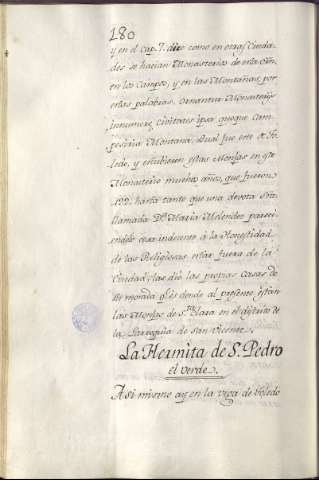 180
y en el cap. 7. dice como en otras Ciuda-
des se hacian Monasterios de esta Orn.
en los Campos, y en las Montañas, por
estas palabras. Ornantur Monasterijs
innumeris civitates ipsæ quoque Cam-
pestria Montana. Qual fue este de To-
ledo, y estubieron estas Monjas en este
Monasterio muchos años, que fueron
122. hasta tanto que una devota Sra.
llamada Dª Maria Melendez pareci-
endole cosa indecente á la Honestidad
de las Religiosas estar fuera de la
Ciudad, las dió las propias Casas de
su morada q. es donde al presente están
las Monjas de Sta. Clara en el distrito de
la Parroquia de San Vicente.
La Hermita de S. Pedro
el verde.
Asi mismo ay en la vega de Toledo